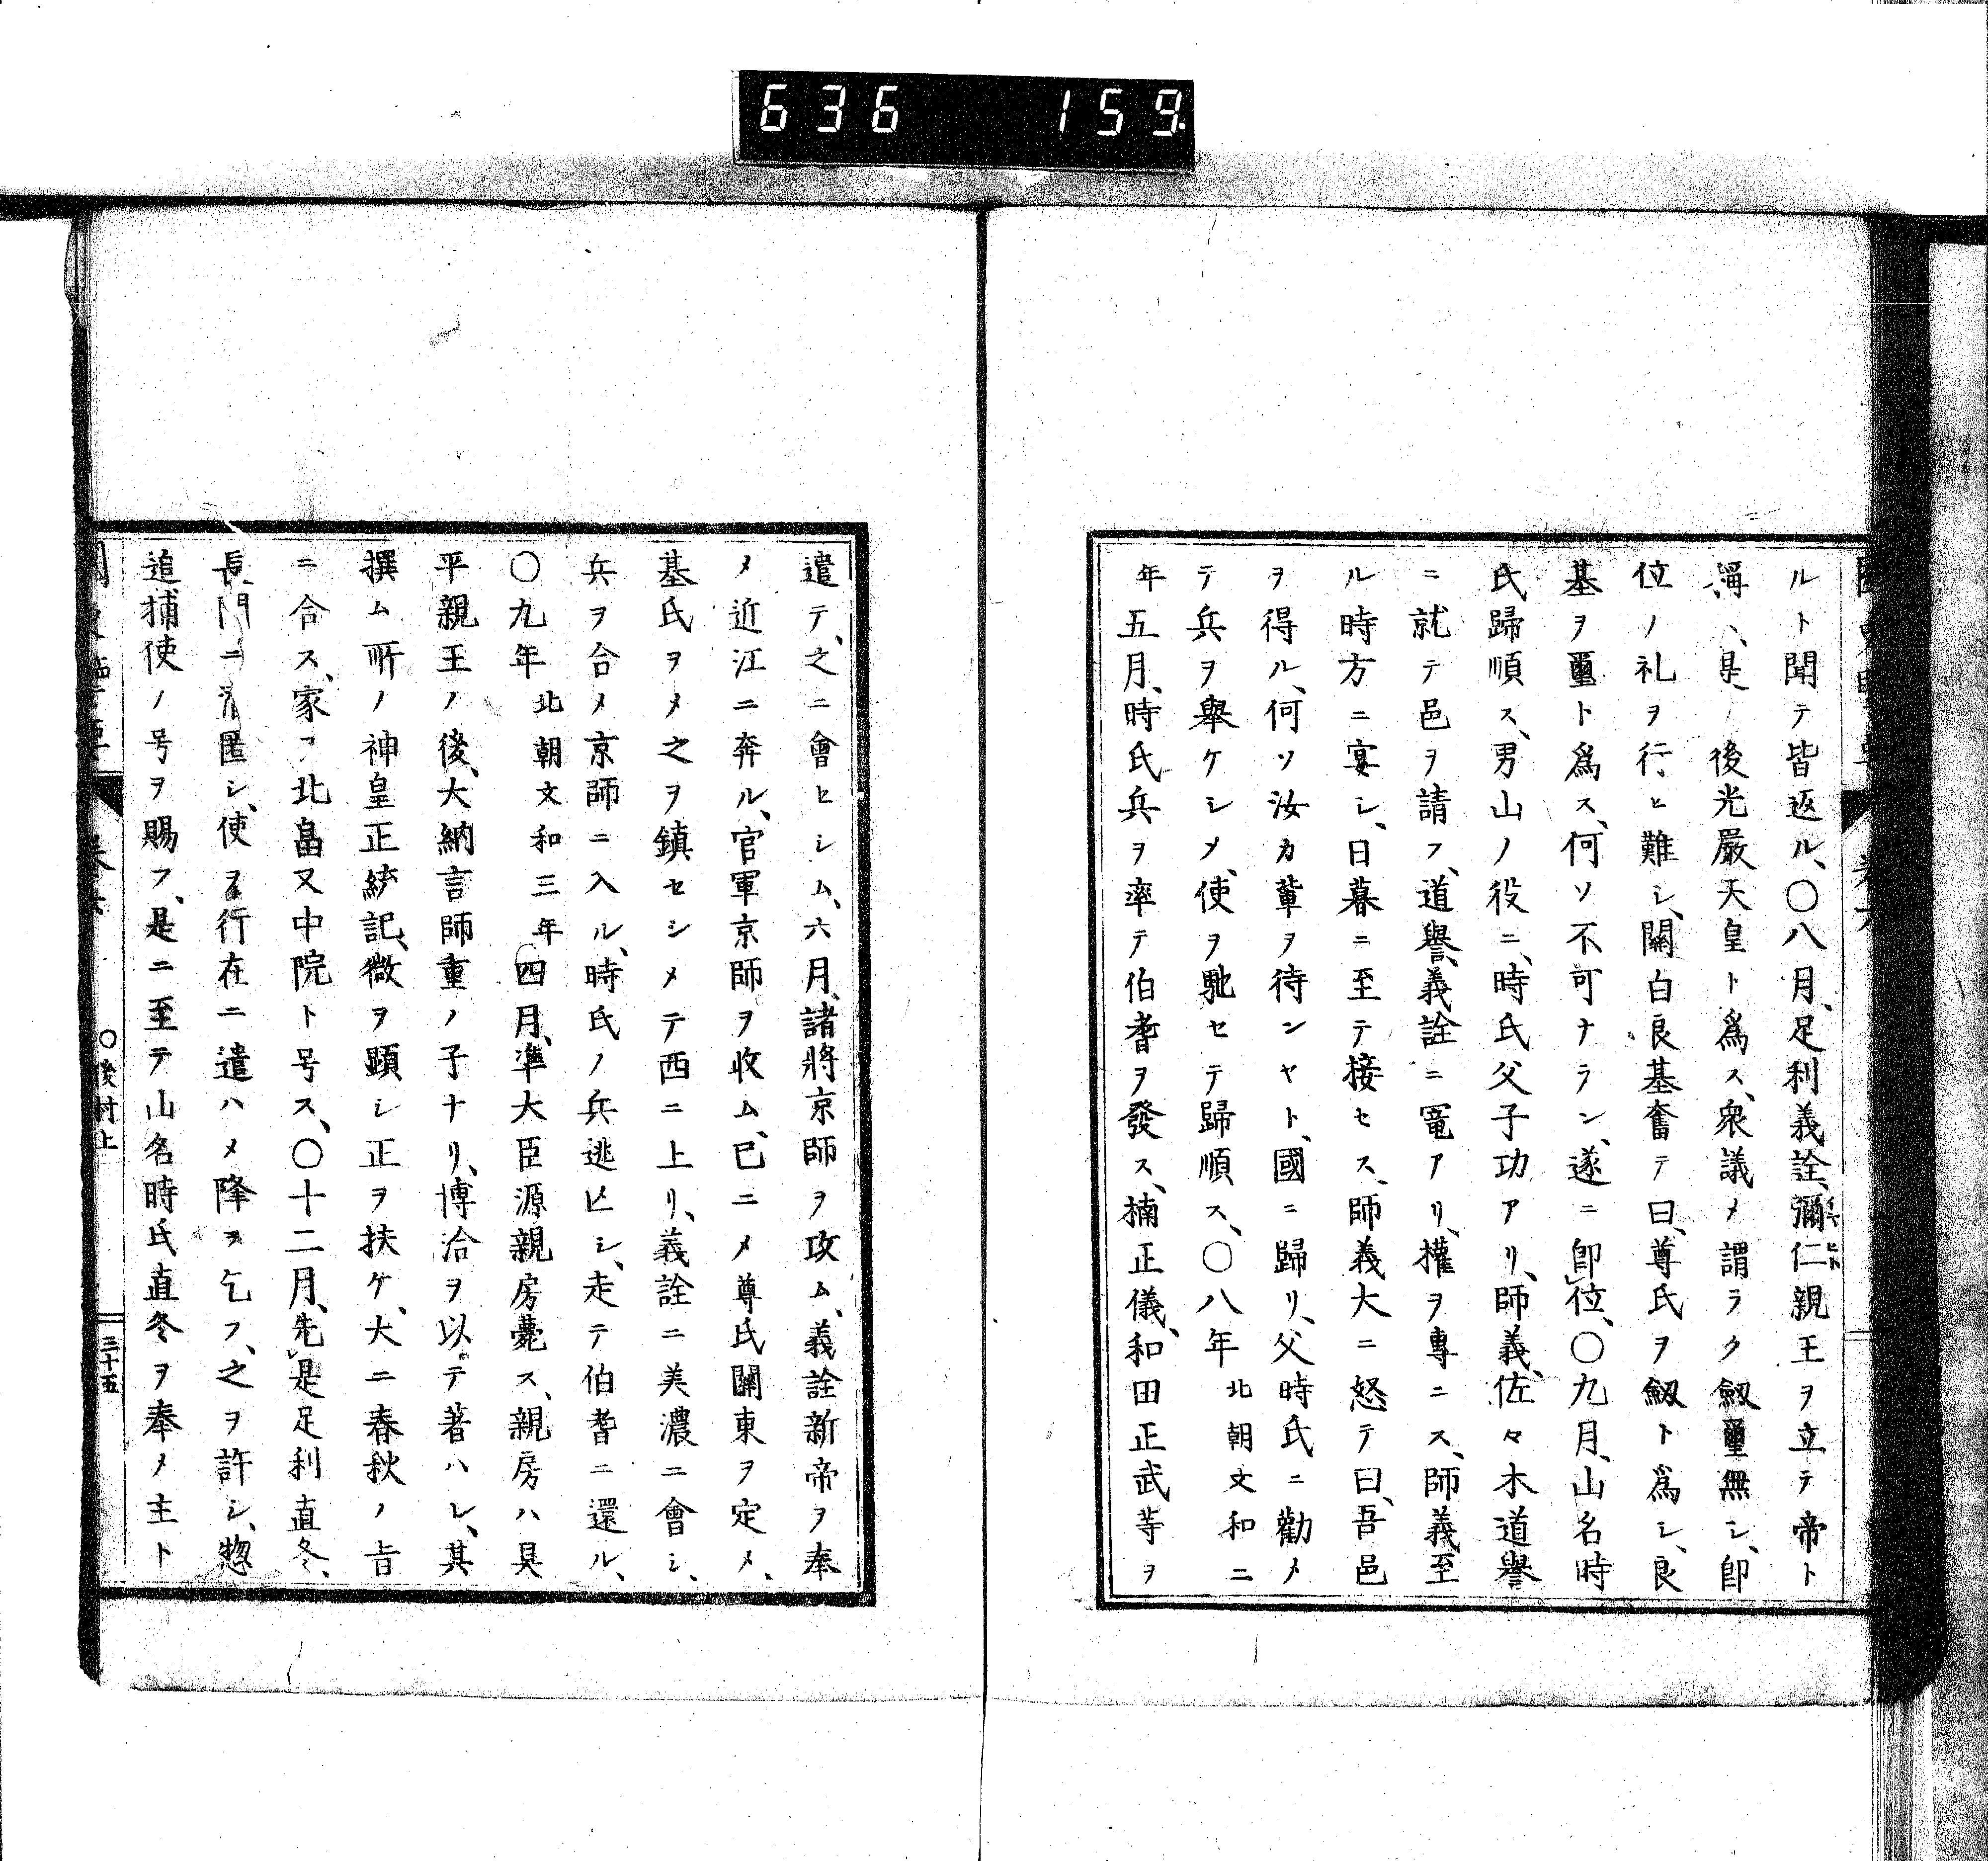 636 159.
ルト聞テ皆返ル、〇八月、足利義詮、彌仁親王ヲ立テ帝ト
後光嚴天皇ト爲ス、衆議メ謂ラク劔璽無シ、卽
位ノ礼ヲ行ヒ難シ、關白良基奮テ曰、尊氏ヲ劔ト爲シ、良
基ヲ璽ト爲ス、何ソ不可ナラン、遂ニ卽位、〇九月、山名時
氏歸順ス、男山ノ役ニ、時氏父子功アリ、師義、佐々木道譽
ニ就テ邑ヲ請フ、道譽、義詮ニ寵アリ、權ヲ專ニス、師義至
ル時方ニ宴シ、日暮ニ至テ接セス、師義大ニ怒テ曰、吾邑
ヲ得ル、何ソ汝カ輩ヲ待ンヤト、國ニ歸リ、父時氏ニ勸メ
テ兵ヲ擧ケシメ、使ヲ馳セテ歸順ス、〇八年北朝文和二
年五月、時氏兵ヲ率テ伯耆ヲ發ス、楠正儀、和田正武等ヲ
遣テ、之ニ會セシム、六月、諸將京師ヲ攻ム、義詮新帝ヲ奉
メ近江ニ奔ル、官軍京師ヲ收ム、已ニメ尊氏關東ヲ定メ、
基氏ヲメ之ヲ鎮セシメテ西ニ上リ、義詮ニ美濃ニ會シ、
兵ヲ合メ京師ニ入ル、時氏ノ兵逃亡シ、走テ伯耆ニ還ル、
〇九年北朝文和三年四月、準大臣源親房薨ス、親房ハ具
平親王ノ後、大納言師重ノ子ナリ、博洽ヲ以テ著ハレ、其
撰ム所ノ神皇正統記、微ヲ顕シ正ヲ扶ケ、大ニ春秋ノ旨
ニ合ス、家ヲ北畠又中院ト号ス、〇十二月、先是足利直冬、
長門ニ匿シ、使ヲ行在ニ遣ハメ降ヲ乞フ、之ヲ許シ、惣
追捕使ノ号ヲ賜フ、是ニ至テ山名時氏直冬ヲ奉メ主ト
〇後村上
三十五